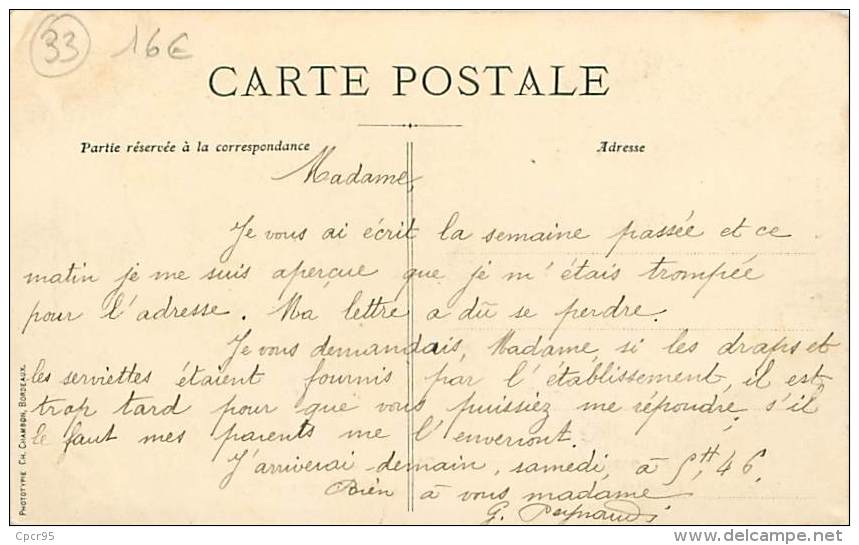 33 16€
CARTE POSTALE
Partie réservée à la correspondance
Adresse
Madame,
Je vous ai écrit la semaine passée et ce
matin je me suis aperçue que je m'étais trompée
pour l'adresse. Ma lettre a dû se perdre.
Je vous demandais, Madame, si les draps et
les serviettes étaient fournis par l'établissement, il est
trop tard pour que vous puissiez me répondre, s'il
le faut mes parents me l'enverront.
J'arriverai demain, samedi, à 5H,46.
Bien à vous madame
G.
PHOTOTYPIE CH. CHAMBON, BORDEAUX.
Cpcr95
delcampe.net